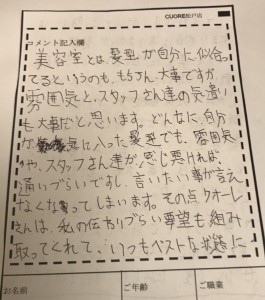 CUORE松戸店
コメント記入欄
美容室とは、髪型が自分に似合っ
てるというのも、もちろん大事ですが、
雰囲気と、スタッフさん達の気遣い
も大事だと思います。どんなに、自分
が気に入った髪型でも、雰囲気
や、スタッフさん達が、感じ悪ければ、
通いづらいですし、言いたい事が言え
なくなってしまいます。その点クオーレ
さんは、私の伝わりづらい要望も組み
取ってくれて、いつもベストな状態に
お名前
ご年齢
ご職業